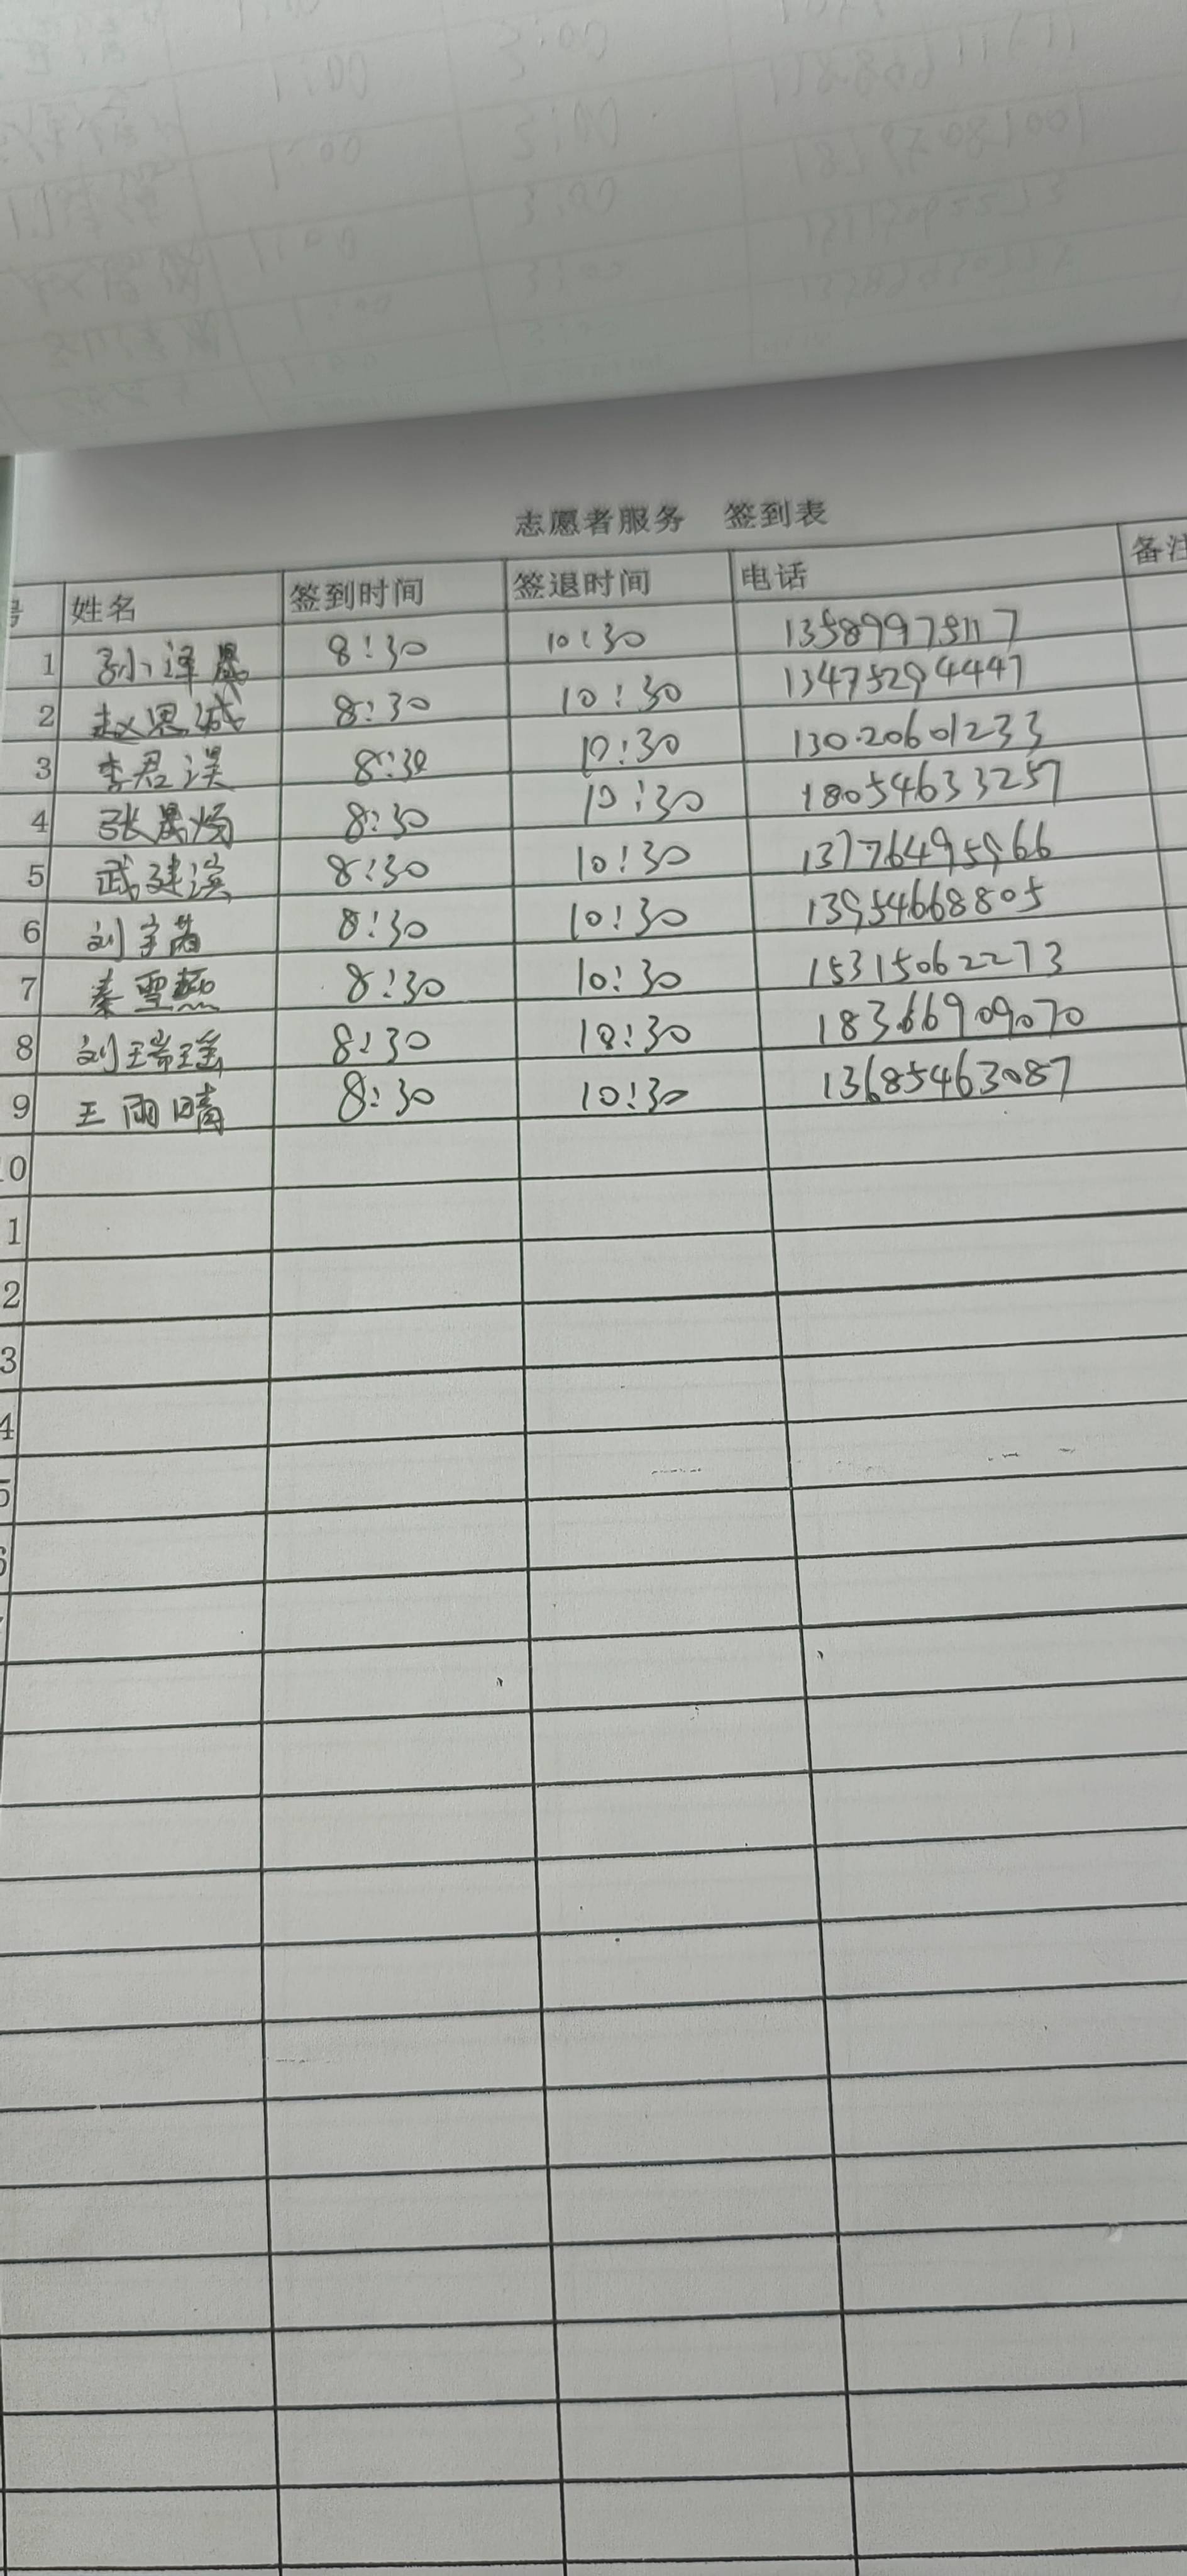 志愿者服务 签到表
号 姓名 签到时间 签退时间 电话 备注
1 孙泽 8:30 10:30 13589975117
2 赵恩诚 8:30 10:30 13475294447
3 李君 8:30 10:30 13020601233
4 张晨炀 8:30 10:30 18054633257
5 武建滨 8:30 10:30 13776495966
6 刘宇 8:30 10:30 13954668805
7 秦雪燕 8:30 10:30 15315062273
8 刘瑞瑶 8:30 10:30 18366909070
9 王雨晴 8:30 10:30 13685463087
10
1
2
3
4
5
6